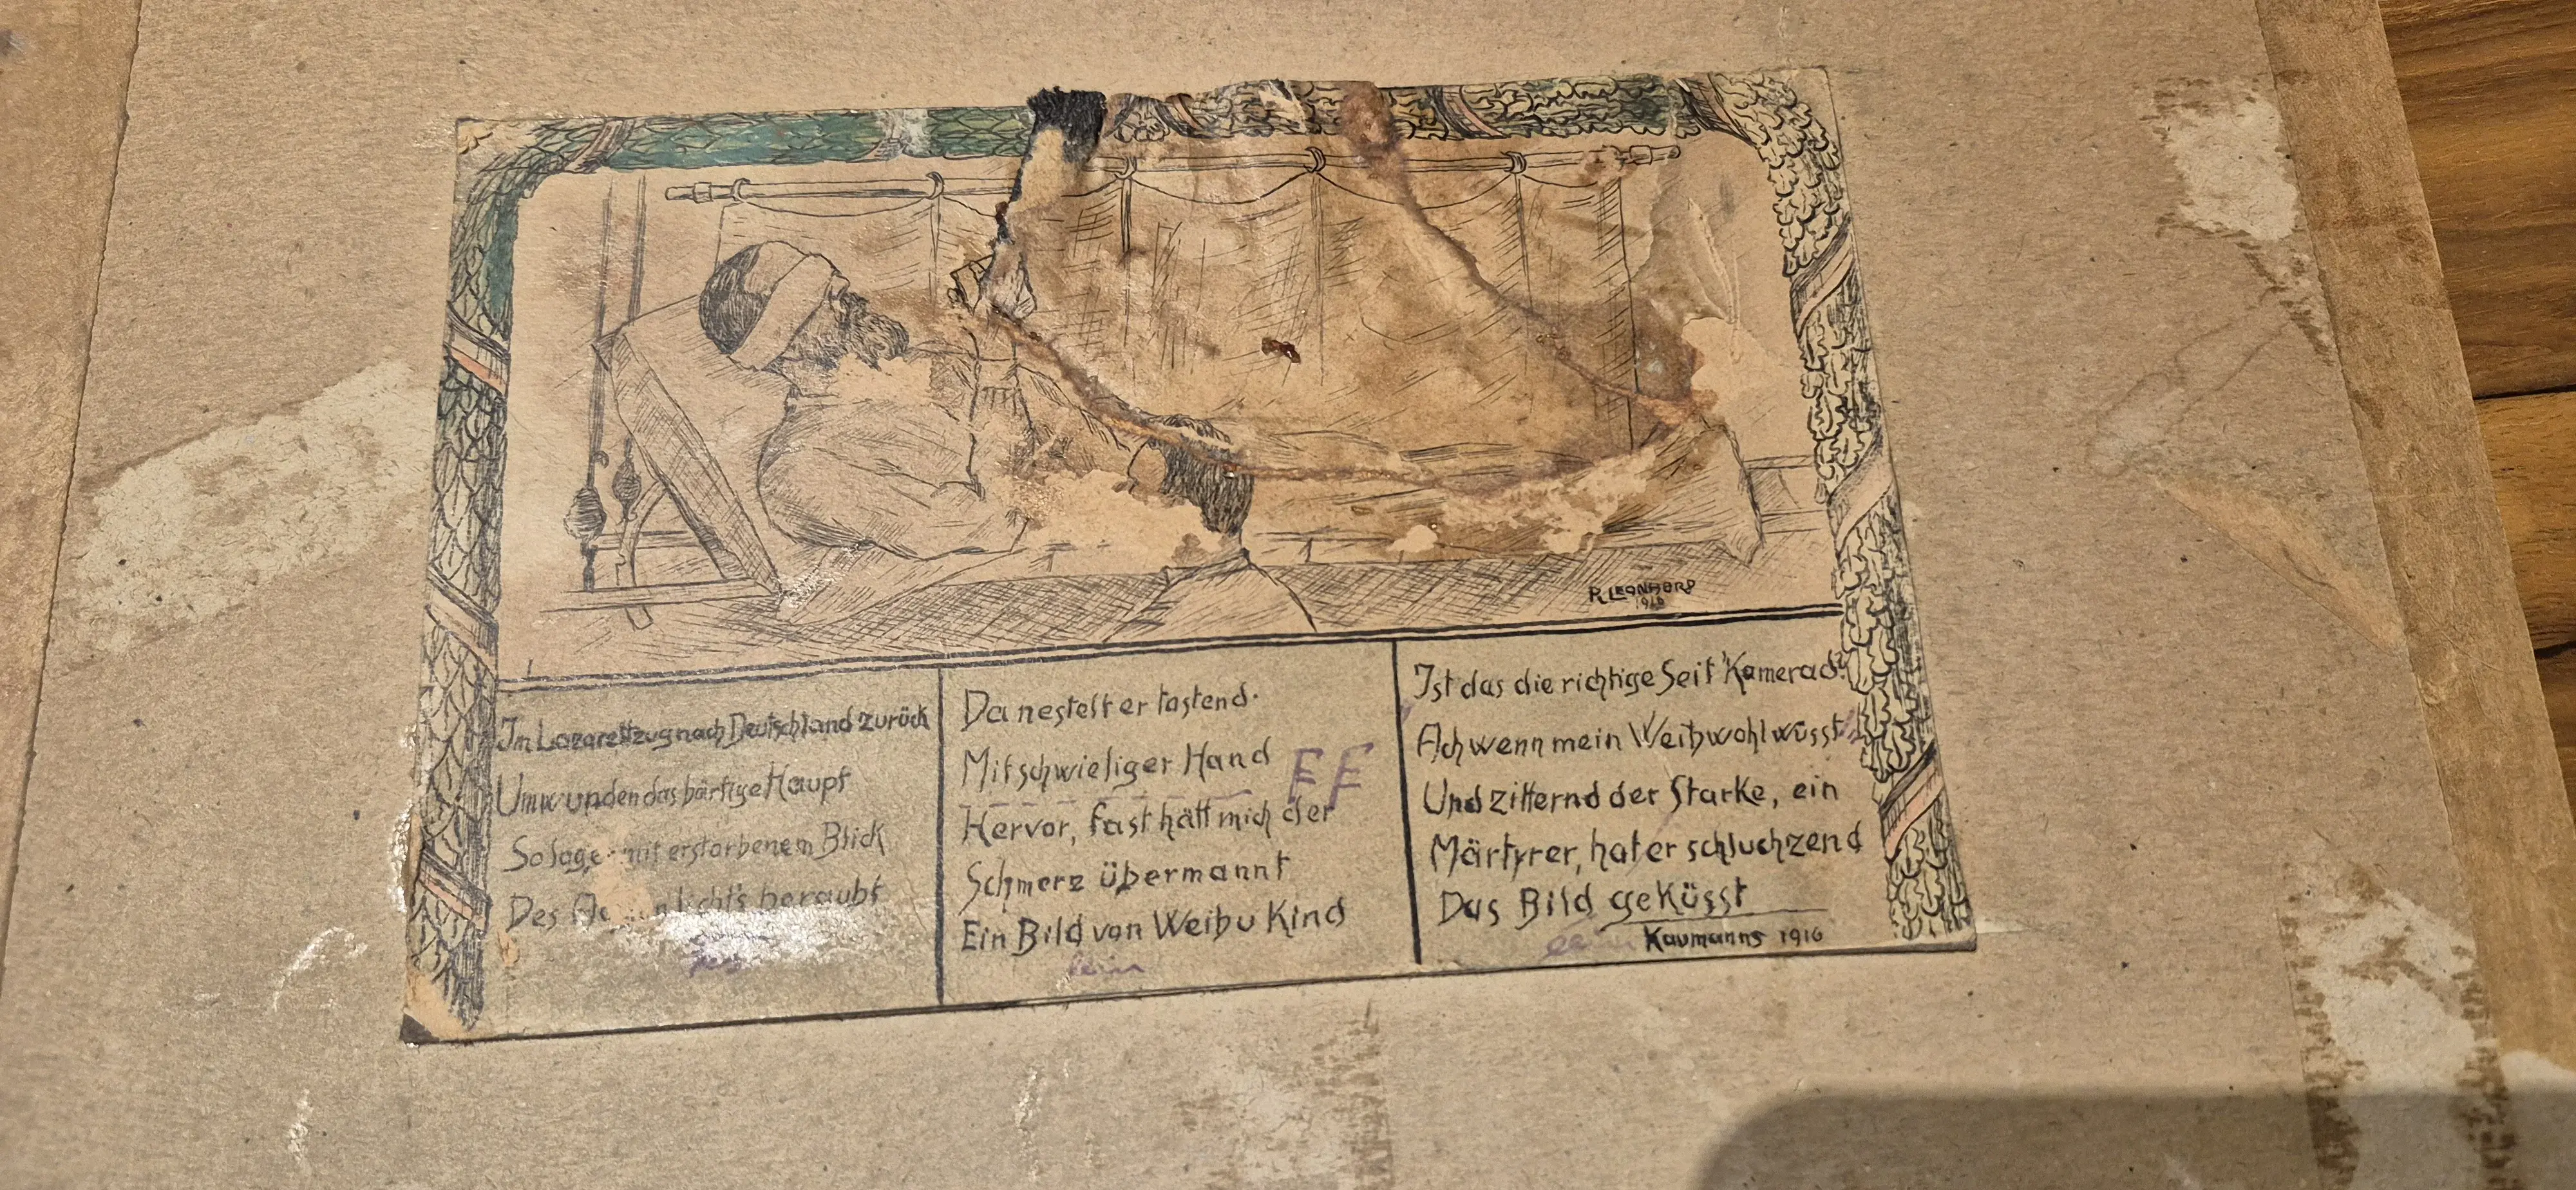 R. LEONHARD
1916
Im Lazarettzug nach Deutschland zurück
Umwunden das bärtige Haupt
So lag er mit erstorbenem Blick
Des beraubt
Da nestelt er tastend.
Mit schwieliger Hand
Hervor, fast hätt mich der
Schmerz übermannt
Ein Bild von Weib u Kind
FF
Ist das die richtige Seit' Kamerad?
Ach wenn mein Weib wohl wüsst
Und zitternd der Starke, ein
Märtyrer, hat er schluchzend
Das Bild geküsst
Kaumanns 1916